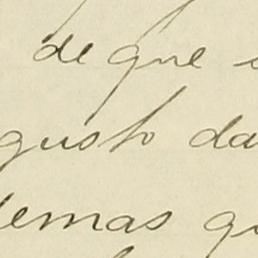 de que
gusto da
emas qu